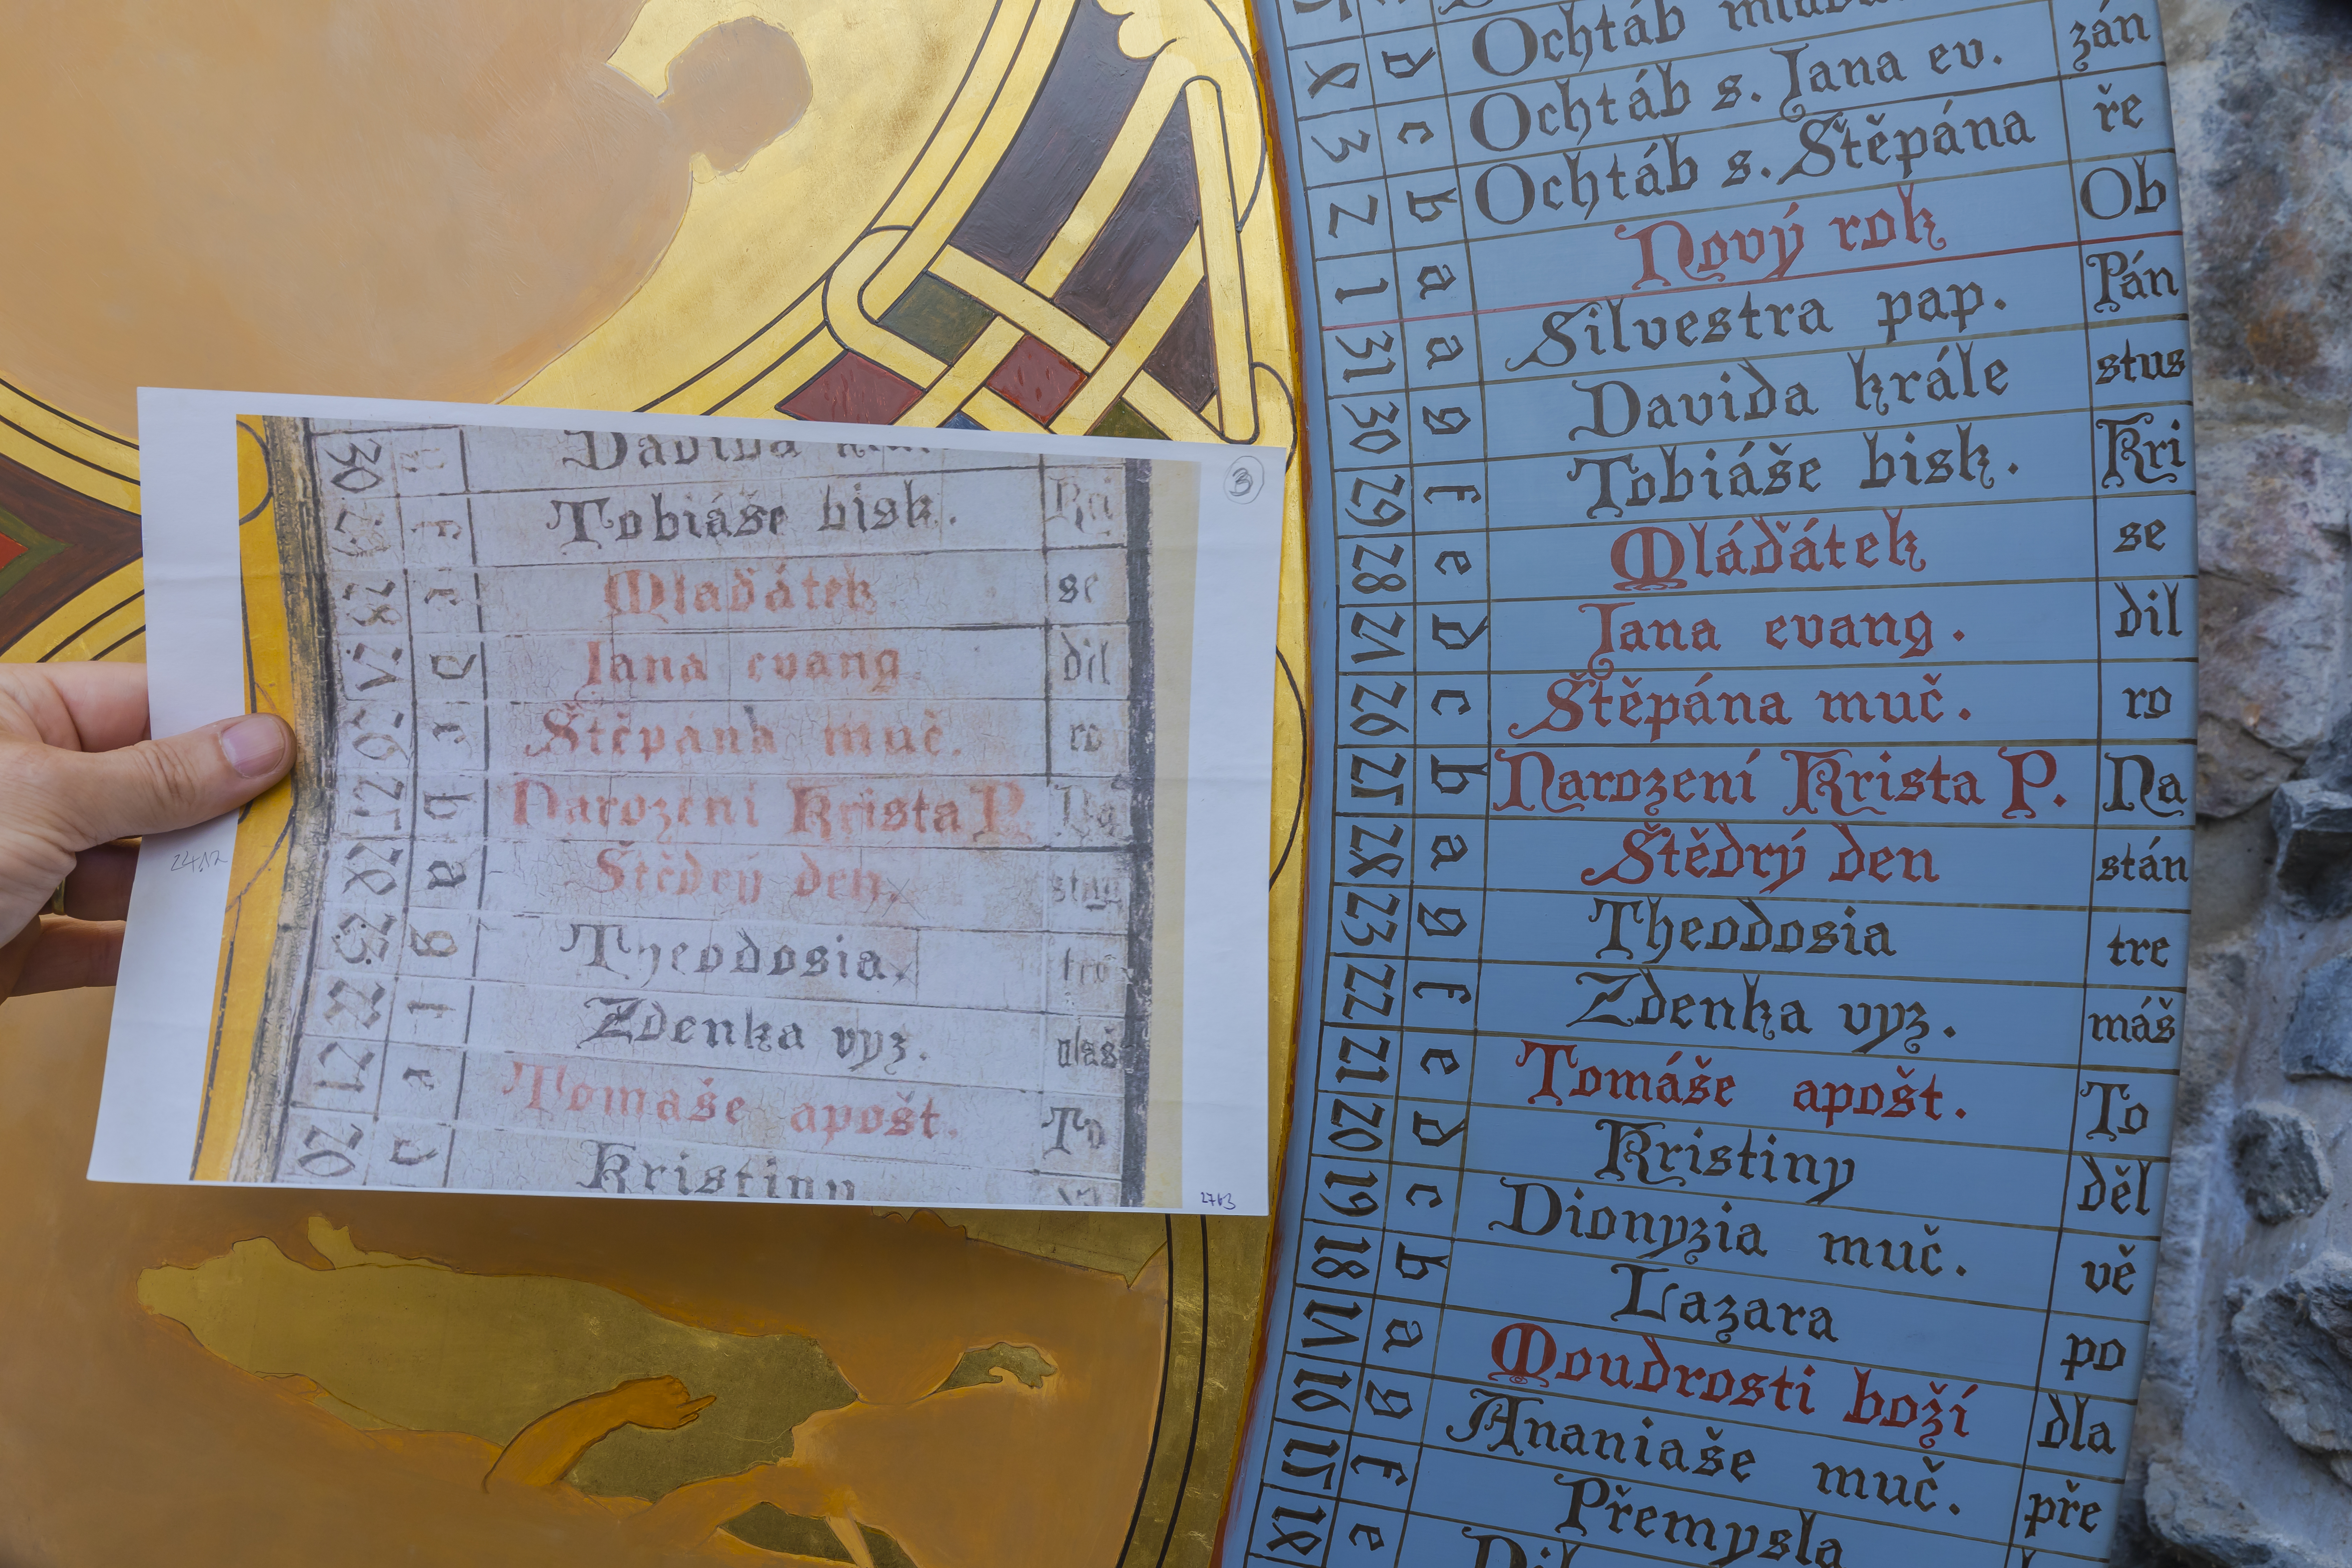 4 d Ochtáb
3 c Ochtáb s. Jana ev. zán
2 b Ochtáb s. Štěpána ře
1 a Nový rok Ob
31 a Silvestra pap. Pán
30 g Davida krále stus
29 f Tobiáše bisk. Kri
28 e Mláďátek se
27 d Jana evang. dil
26 c Štěpána muč. ro
25 b Narození Krista P. Na
24 a Štědrý den stán
23 g Theodosia tre
22 f Zdenka vyz. máš
21 e Tomáše apošt. To
20 d Kristiny děl
19 c Dionyzia muč. vě
18 b Lazara po
17 a Moudrosti boží dla
16 g Ananiaše muč. pře
15 f Přemysla
14 e
3
30 Davida
Tobiáše bisk. Kri
28 Mláďátek se
27 d Jana evang. dil
26 Štěpána muč. ro
25 b Narození Krista P. Na
24 a Štědrý den. stán
23 g Theodosia.
22 f Zdenka vyz. máš
21 Tomáše apošt. To
20 Kristiny
24.12